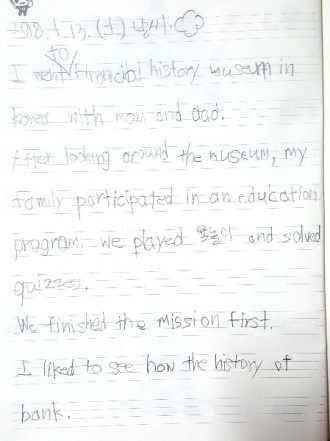 2018. 1. 13. (土) 날씨:
to
I went financial history museum in
korea with mom and dad.
After looking around the museum, my
family participated in an education
program. we played 윷놀이 and solved
quizzes.
We finished the mission first.
I liked to see how the history of
bank.